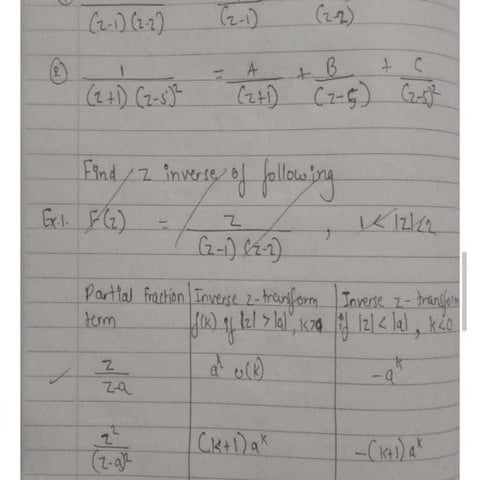 (z-1)(z-2) (z-1) (z-2)
② 1/((z+1)(z-5)²) = A/(z+1) + B/(z-5) + C/(z-5)²
Find z inverse of following
Ex.1. F(z) = z/((z-1)(z-2)) , 1<|z|<2
Partial fraction term
Inverse z-transform f(k) if |z|>|a|, k≥0
Inverse z-transform if |z|<|a|, k<0
✓ z/(z-a) a^k u(k) -a^k
z²/(z-a)² (k+1)a^k -(k+1)a^k